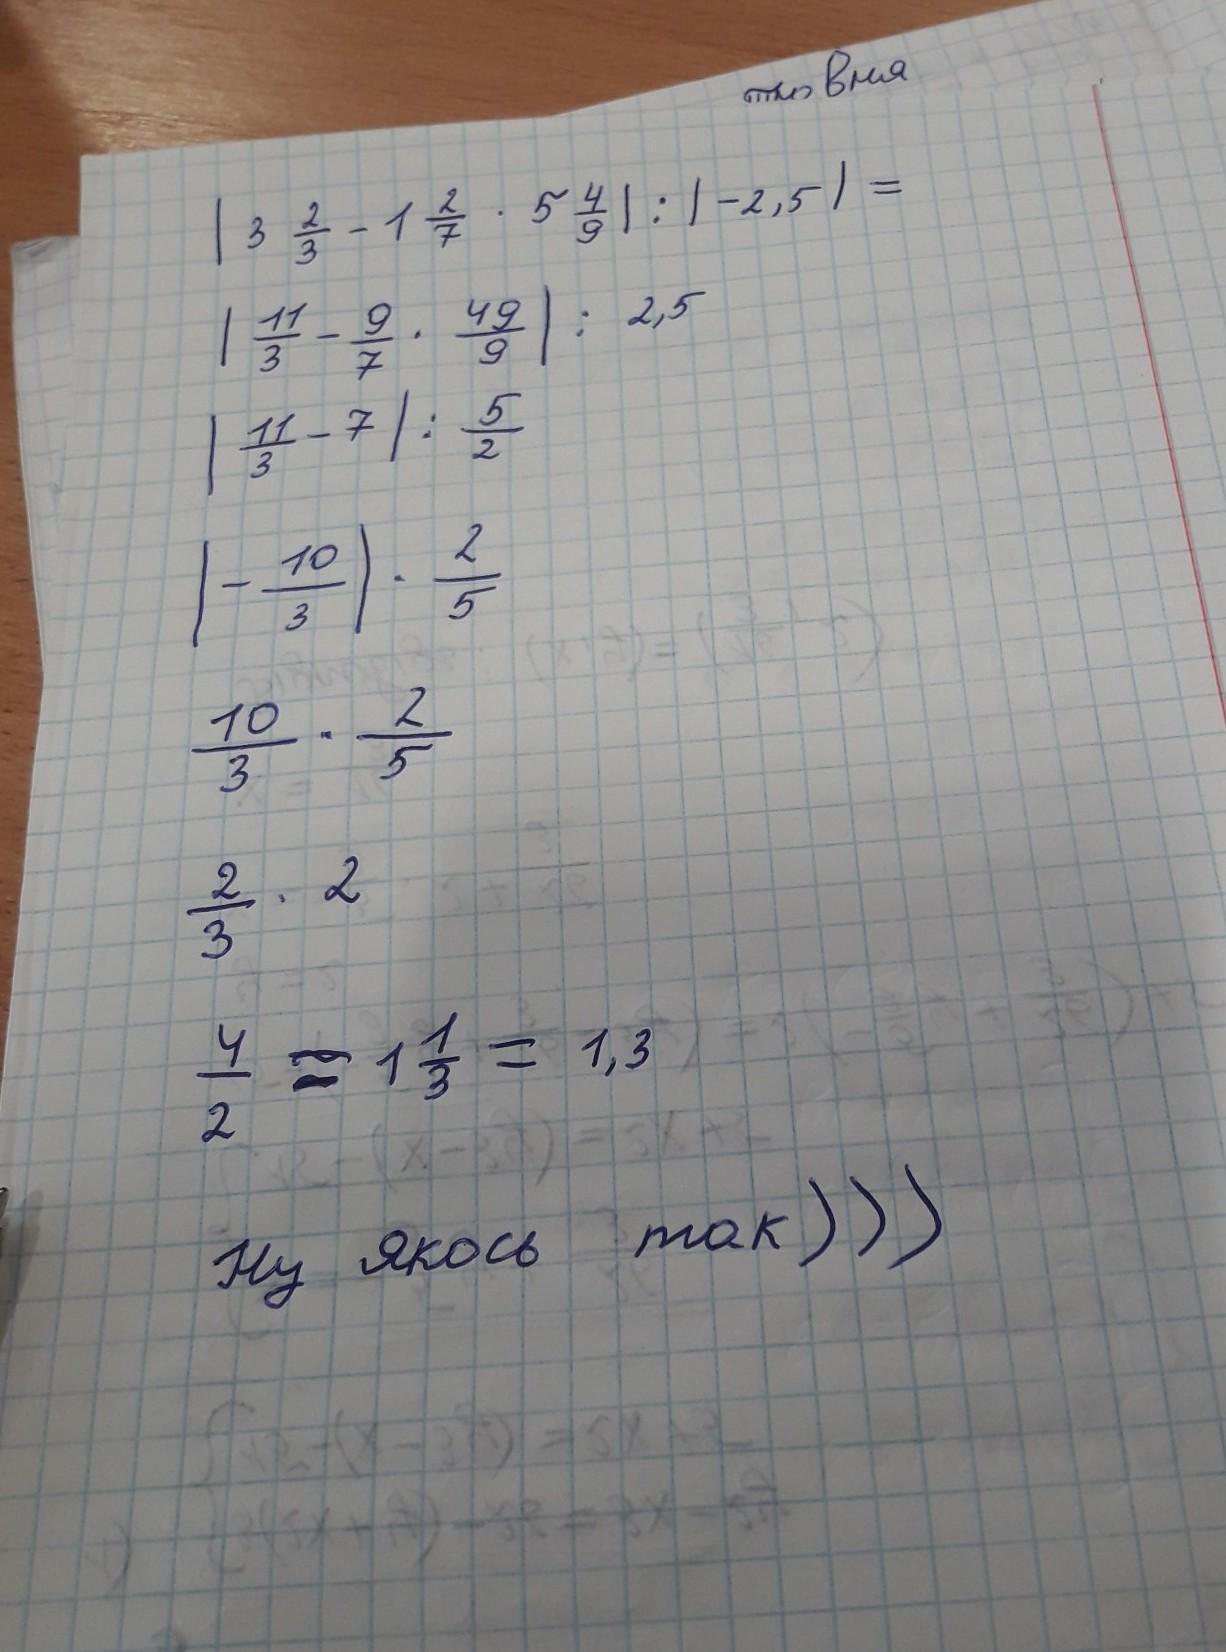 | 3 2/3 - 1 2/7 · 5 4/9 | : | -2,5 | =
| 11/3 - 9/7 · 49/9 | : 2,5
| 11/3 - 7 | : 5/2
| - 10/3 | · 2/5
10/3 · 2/5
2/3 · 2
4/2 = 1 1/3 = 1,3
Ну якось так)))